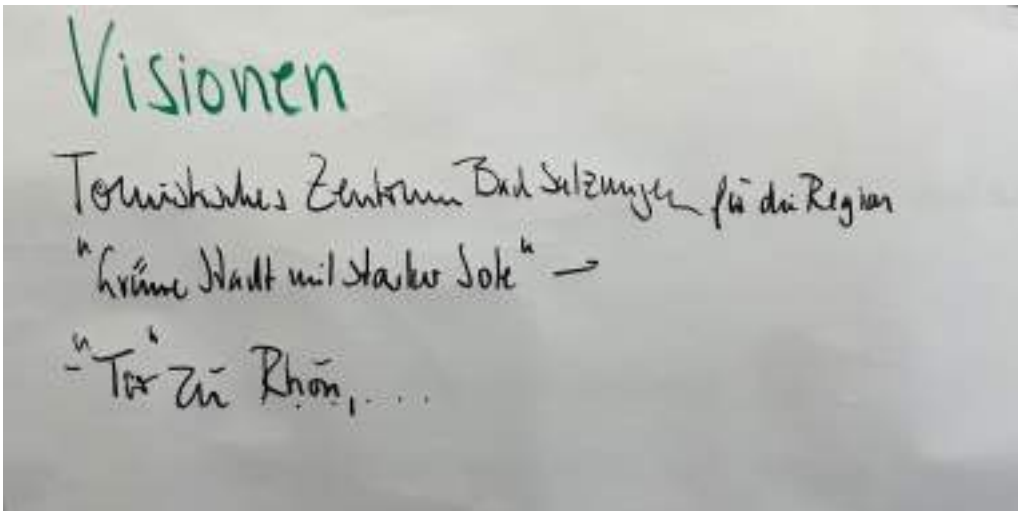 Visionen
Touristisches Zentrum Bad Salzungen für die Region
"Grüne Stadt mit starker Sole" →
- "Tor" zu Rhön, ....